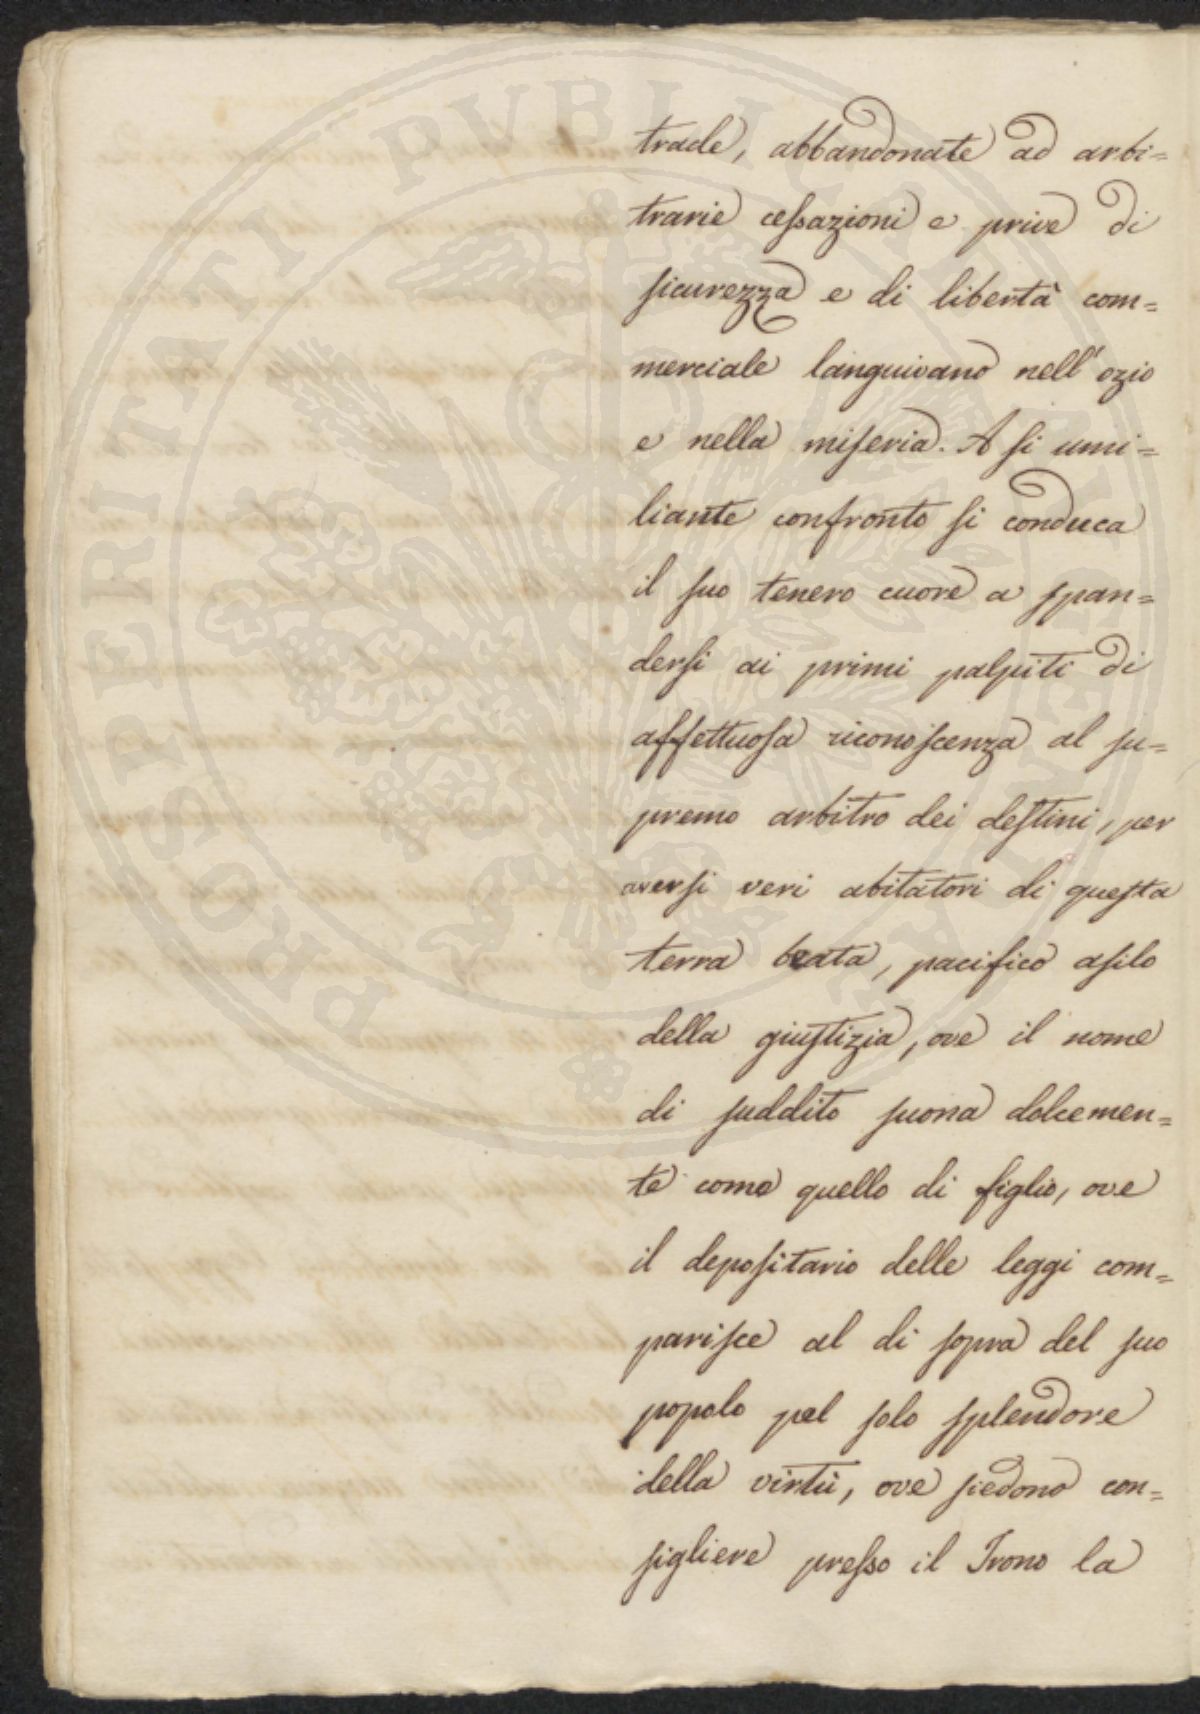 PROSPERITATI PUBLICAE AUGENDAE
trade, abbandonate ad arbi=
trarie cessazioni e prive di
sicurezza e di libertà com=
merciale languivano nell' ozio
e nella miseria. A si umi=
liante confronto si conduca
il suo tenero cuore a span=
dersi ai primi palpiti di
affettuosa riconoscenza al su=
premo arbitro dei destini, per
aversi veri abitatori di questa
terra beata, pacifico asilo
della giustizia, ove il nome
di suddito suona dolcemen=
te come quello di figlio, ove
il depositario delle leggi com=
parisce al di sopra del suo
popolo pel solo splendore
della virtù, ove siedono con=
sigliere presso il Trono la